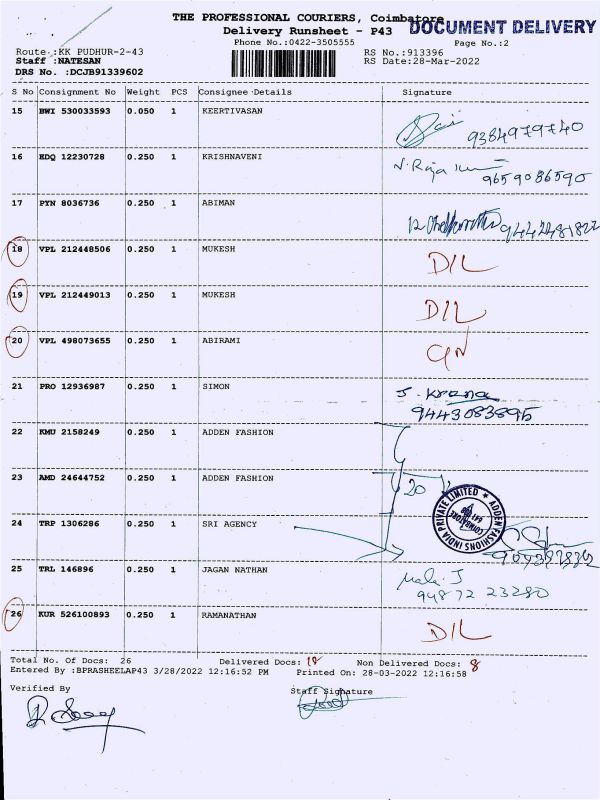 THE PROFESSIONAL COURIERS, Coimbatore
DOCUMENT DELIVERY
Delivery Runsheet - P43
Phone No.:0422-3505555
Page No.:2
Route :KK PUDHUR-2-43
RS No.:913396
Staff :NATESAN
RS Date:28-Mar-2022
DRS No. :DCJB91339602
S No Consignment No Weight PCS Consignee Details Signature
15 BWI 530033593 0.050 1 KEERTIVASAN
9384979740
16 EDQ 12230728 0.250 1 KRISHNAVENI
9659086590
17 PYN 8036736 0.250 1 ABIMAN
18 VPL 212448506 0.250 1 MUKESH D/L
19 VPL 212449013 0.250 1 MUKESH D/L
20 VPL 498073655 0.250 1 ABIRAMI
21 PRO 12936987 0.250 1 SIMON
9443083895
22 KMU 2158249 0.250 1 ADDEN FASHION
23 AMD 24644752 0.250 1 ADDEN FASHION
24 TRP 1306286 0.250 1 SRI AGENCY
ADDEN FASHIONS INDIA PRIVATE LIMITED
COIMBATORE
25 TRL 146896 0.250 1 JAGAN NATHAN Mala. J
94872 23280
26 KUR 526100893 0.250 1 RAMANATHAN D/L
Total No. Of Docs: 26 Delivered Docs: 18 Non Delivered Docs: 8
Entered By :BPRASHEELAP43 3/28/2022 12:16:52 PM Printed On: 28-03-2022 12:16:58
Verified By Staff Signature